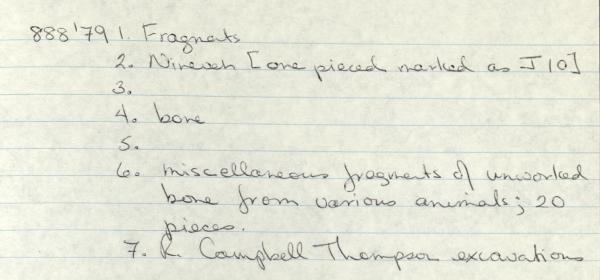 888'79 1. Fragments
2. Nineveh [one pieced marked as J10]
3.
4. bone
5.
6. miscellaneous fragments of unworked
bone from various animals; 20
pieces.
7. R. Campbell Thompson excavations